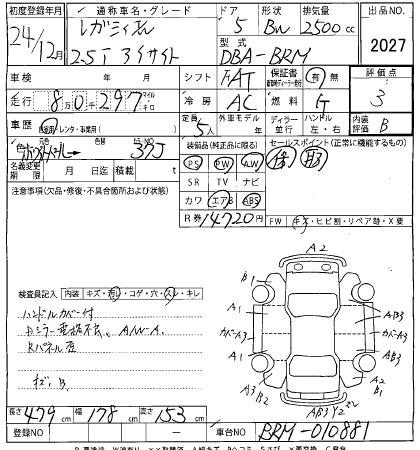 初度登録年月 通称車名・グレード ドア 形状 排気量 出品NO.
24/12月 レガシィ 5 BW 2500cc 2027
2.5i アイサイト 型式 DBA-BRM
車検 年 月 シフト FAT 保証書 有・無 評価点
走行 8万0千297 マイル キロ 冷房 AC 燃料 G 3
車歴 自家用・レンタ・事業用( ) 定員 5人 外車モデル 年 ディーラー 並行 ハンドル 左・右 内装評価 B
色替 37J 装備品(純正品に限る) セールスポイント(正常に機能するもの)
PS PW AW
名義変更期限 月 日 積載 t SR TV ナビ
注意事項(欠品・修復・不具合箇所および状態) カワ エアB ABS
R券 14720円 FW キズ・ヒビ割・リペア跡・X要
A2
B1
検査員記入 内装 キズ・汚レ・コゲ・穴・スレ・キレ
ハンドルカバー付 A1 AB3
Dミラー電格不良 A/W-A カバーA3 カバーA3
Rパネル歪 A1 AB3
キズ、B A3 B2 A2 B1
長さ 479cm 幅 178cm 高さ 153cm AB3Y2
登録NO ー 車台NO BRM-010881